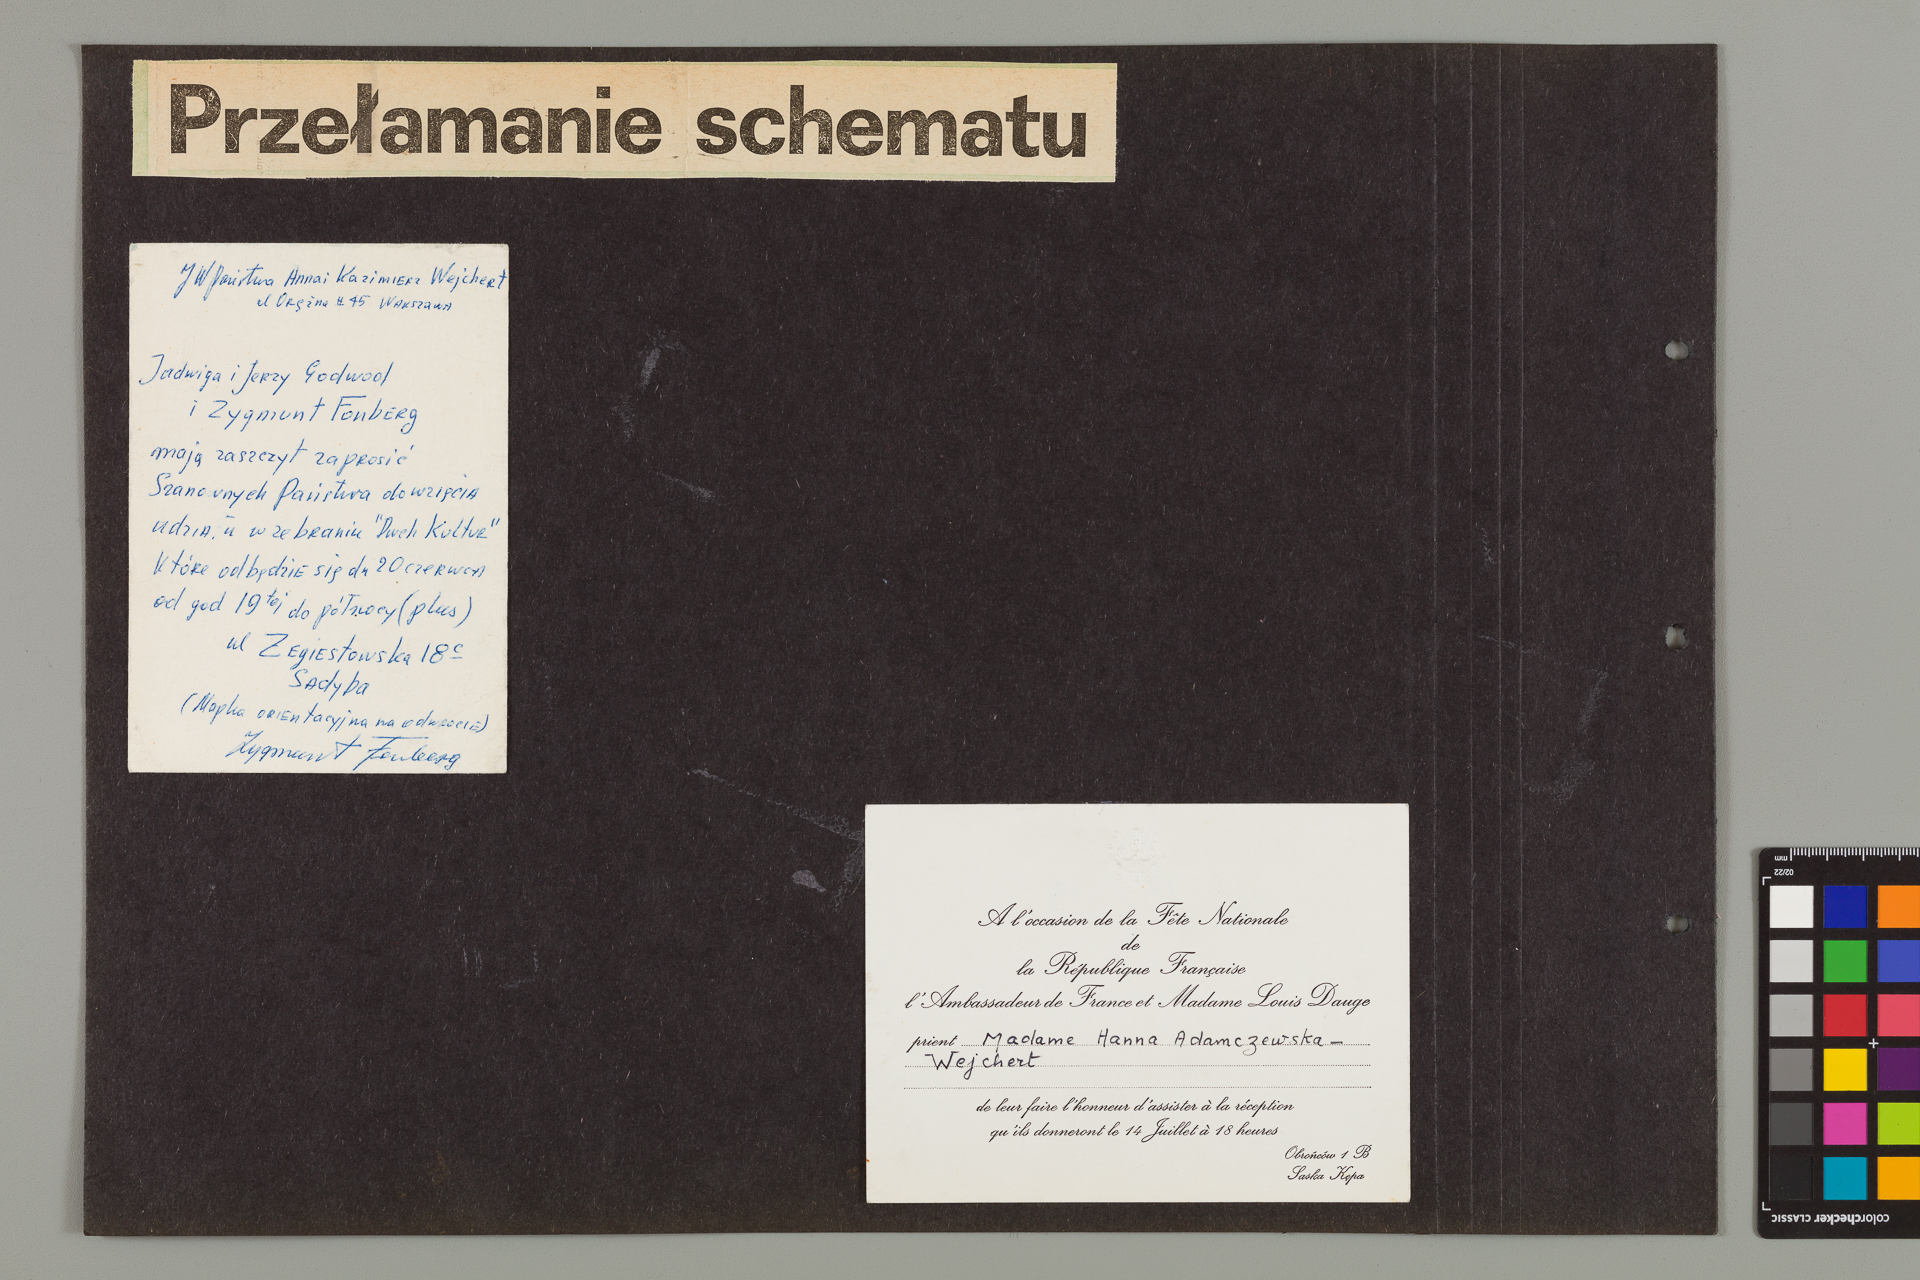 Przełamanie schematu
JW Państwa Anna i Kazimierz Wejchert
ul Orężna # 45 Warszawa
Jadwiga i Jerzy Godwod
i Zygmunt Fonberg
mają zaszczyt zaprosić
Szanownych Państwa do wzięcia
udziału w zebraniu "Dwch Kultur"
które odbędzie się dn 20 czerwca
od god 19tej do północy (plus)
ul Zegiestowska 18c
Sadyba
(Mapka orientacyjna na odwrocie)
Zygmunt Fonberg
A l'occasion de la Fête Nationale
de
la République Française
l'Ambassadeur de France et Madame Louis Dauge
prient Madame Hanna Adamczewska-
Wejchert
de leur faire l'honneur d'assister à la réception
qu'ils donneront le 14 Juillet à 18 heures
Obrońców 1 B
Saska Kępa
mm
02/22
colorchecker CLASSIC